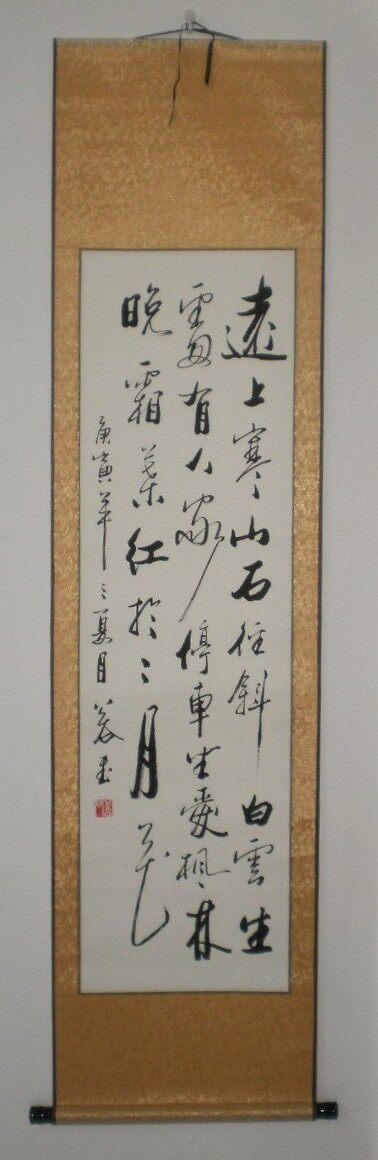 遠上寒山石徑斜白雲生
處有人家停車坐愛楓林
晚霜葉紅於二月花
庚寅年之夏月書